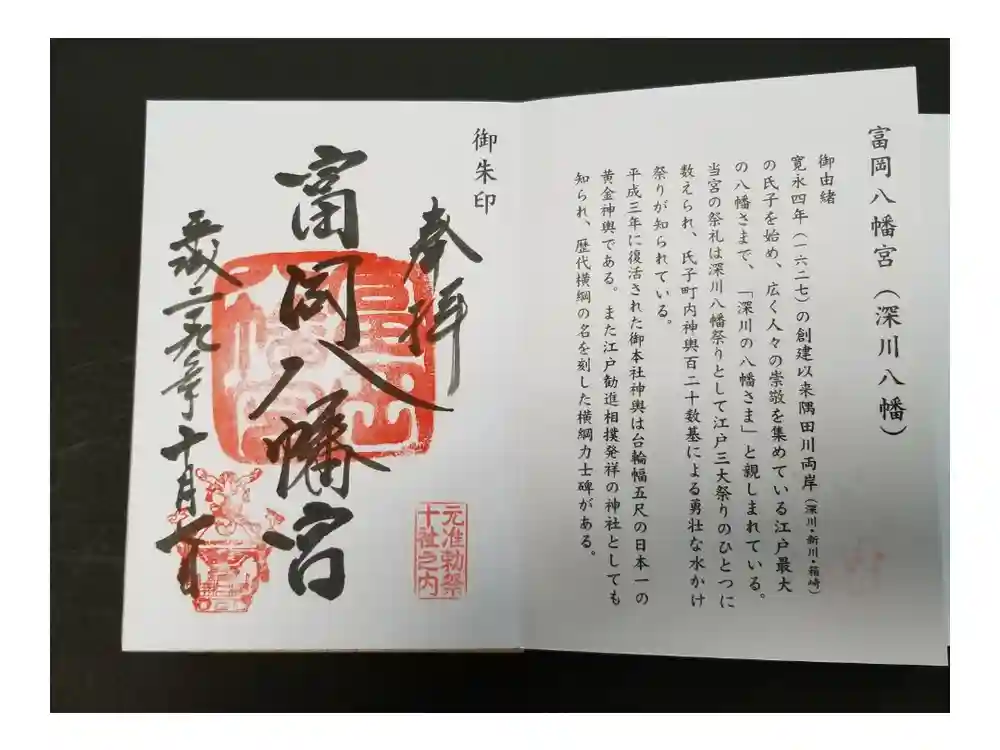 富岡八幡宮（深川八幡）
御由緒
寛永四年（一六二七）の創建以来隅田川両岸（深川・新川・箱崎）
の氏子を始め、広く人々の崇敬を集めている江戸最大
の八幡さまで、「深川の八幡さま」と親しまれている。
当宮の祭礼は深川八幡祭りとして江戸三大祭りのひとつに
数えられ、氏子町内神輿百二十数基による勇壮な水かけ
祭りが知られている。
平成三年に復活された御本社神輿は台輪幅五尺の日本一の
黄金神輿である。また江戸勧進相撲発祥の神社としても
知られ、歴代横綱の名を刻した横綱力士碑がある。
御朱印
奉拝
富岡八幡宮
平成二十九年十月一日
元准勅祭
十社之内